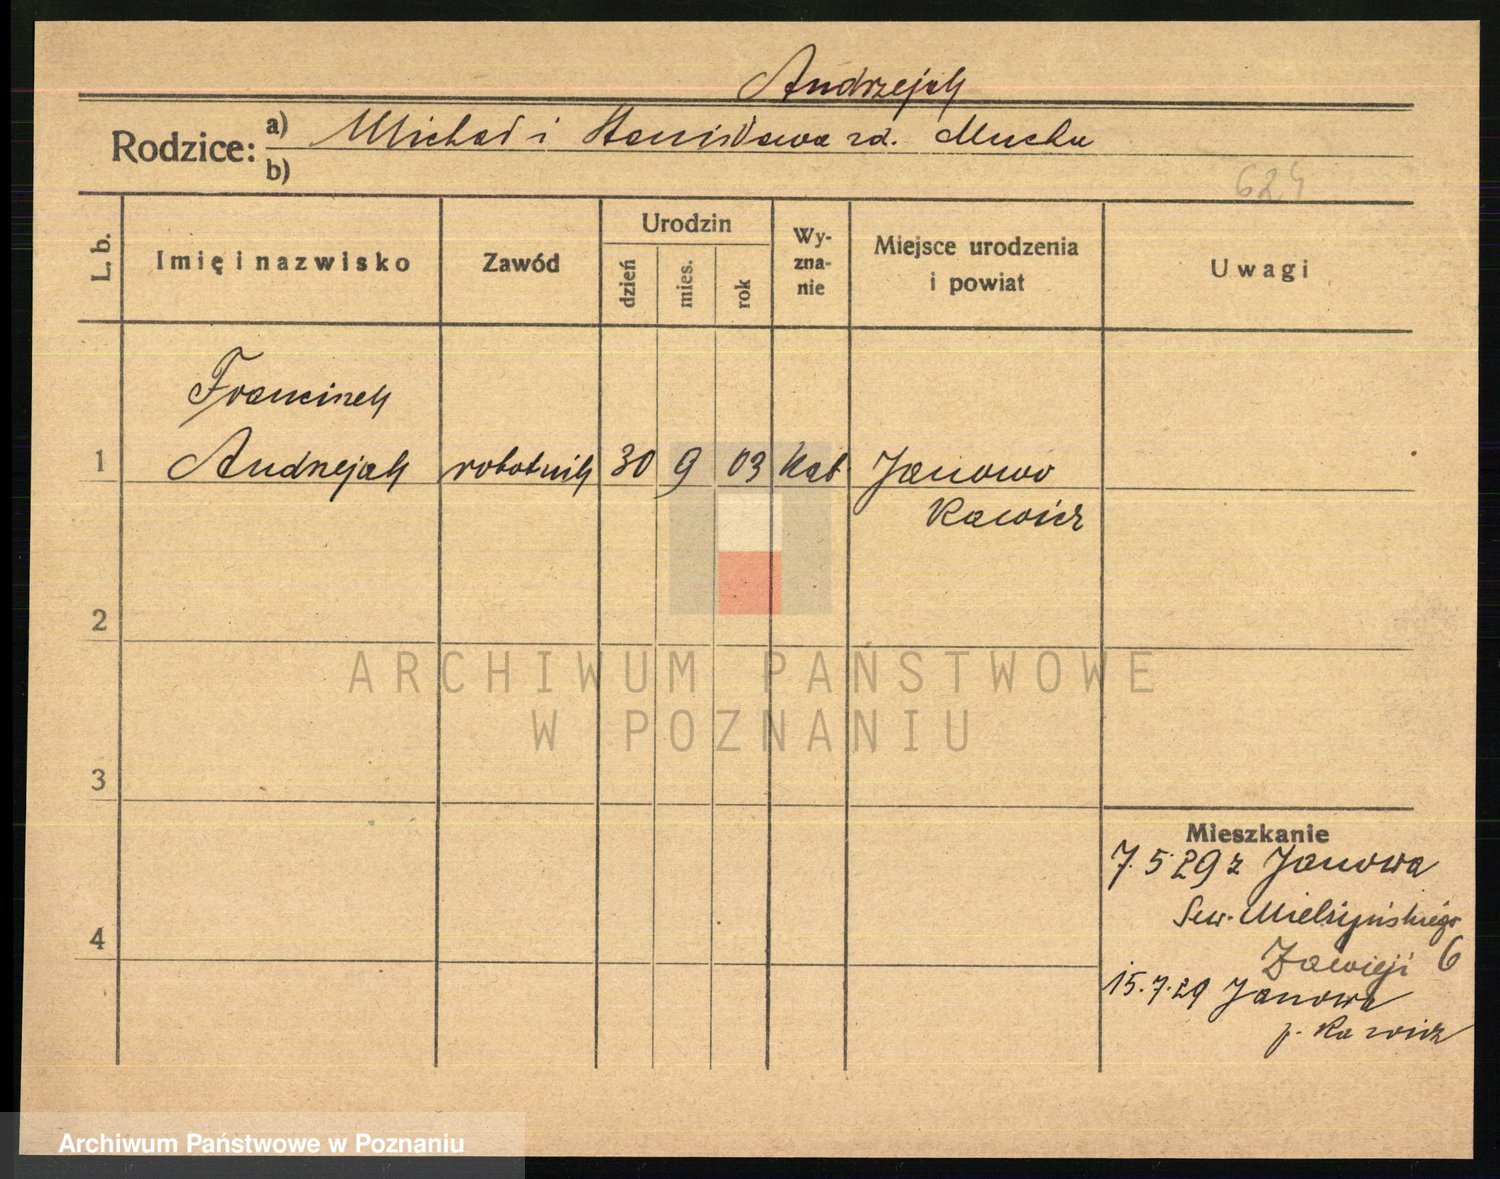 Andrzejak
Rodzice: a) Michał i Stanisława zd. Mucha
b)
624
L. b. Imię i nazwisko Zawód Urodzin dzień mies. rok Wy-zna-nie Miejsce urodzenia i powiat Uwagi
Franciszek
1 Andrzejak robotnik 30 9 03 kat Janowo
Rawicz
2
ARCHIWUM PAŃSTWOWE
W POZNANIU
3
Mieszkanie
7.5.29 z Janowa
Sew. Mielżyńskiego
4
6
15.7.29 Janowa
p. Rawicz
Archiwum Państwowe w Poznaniu